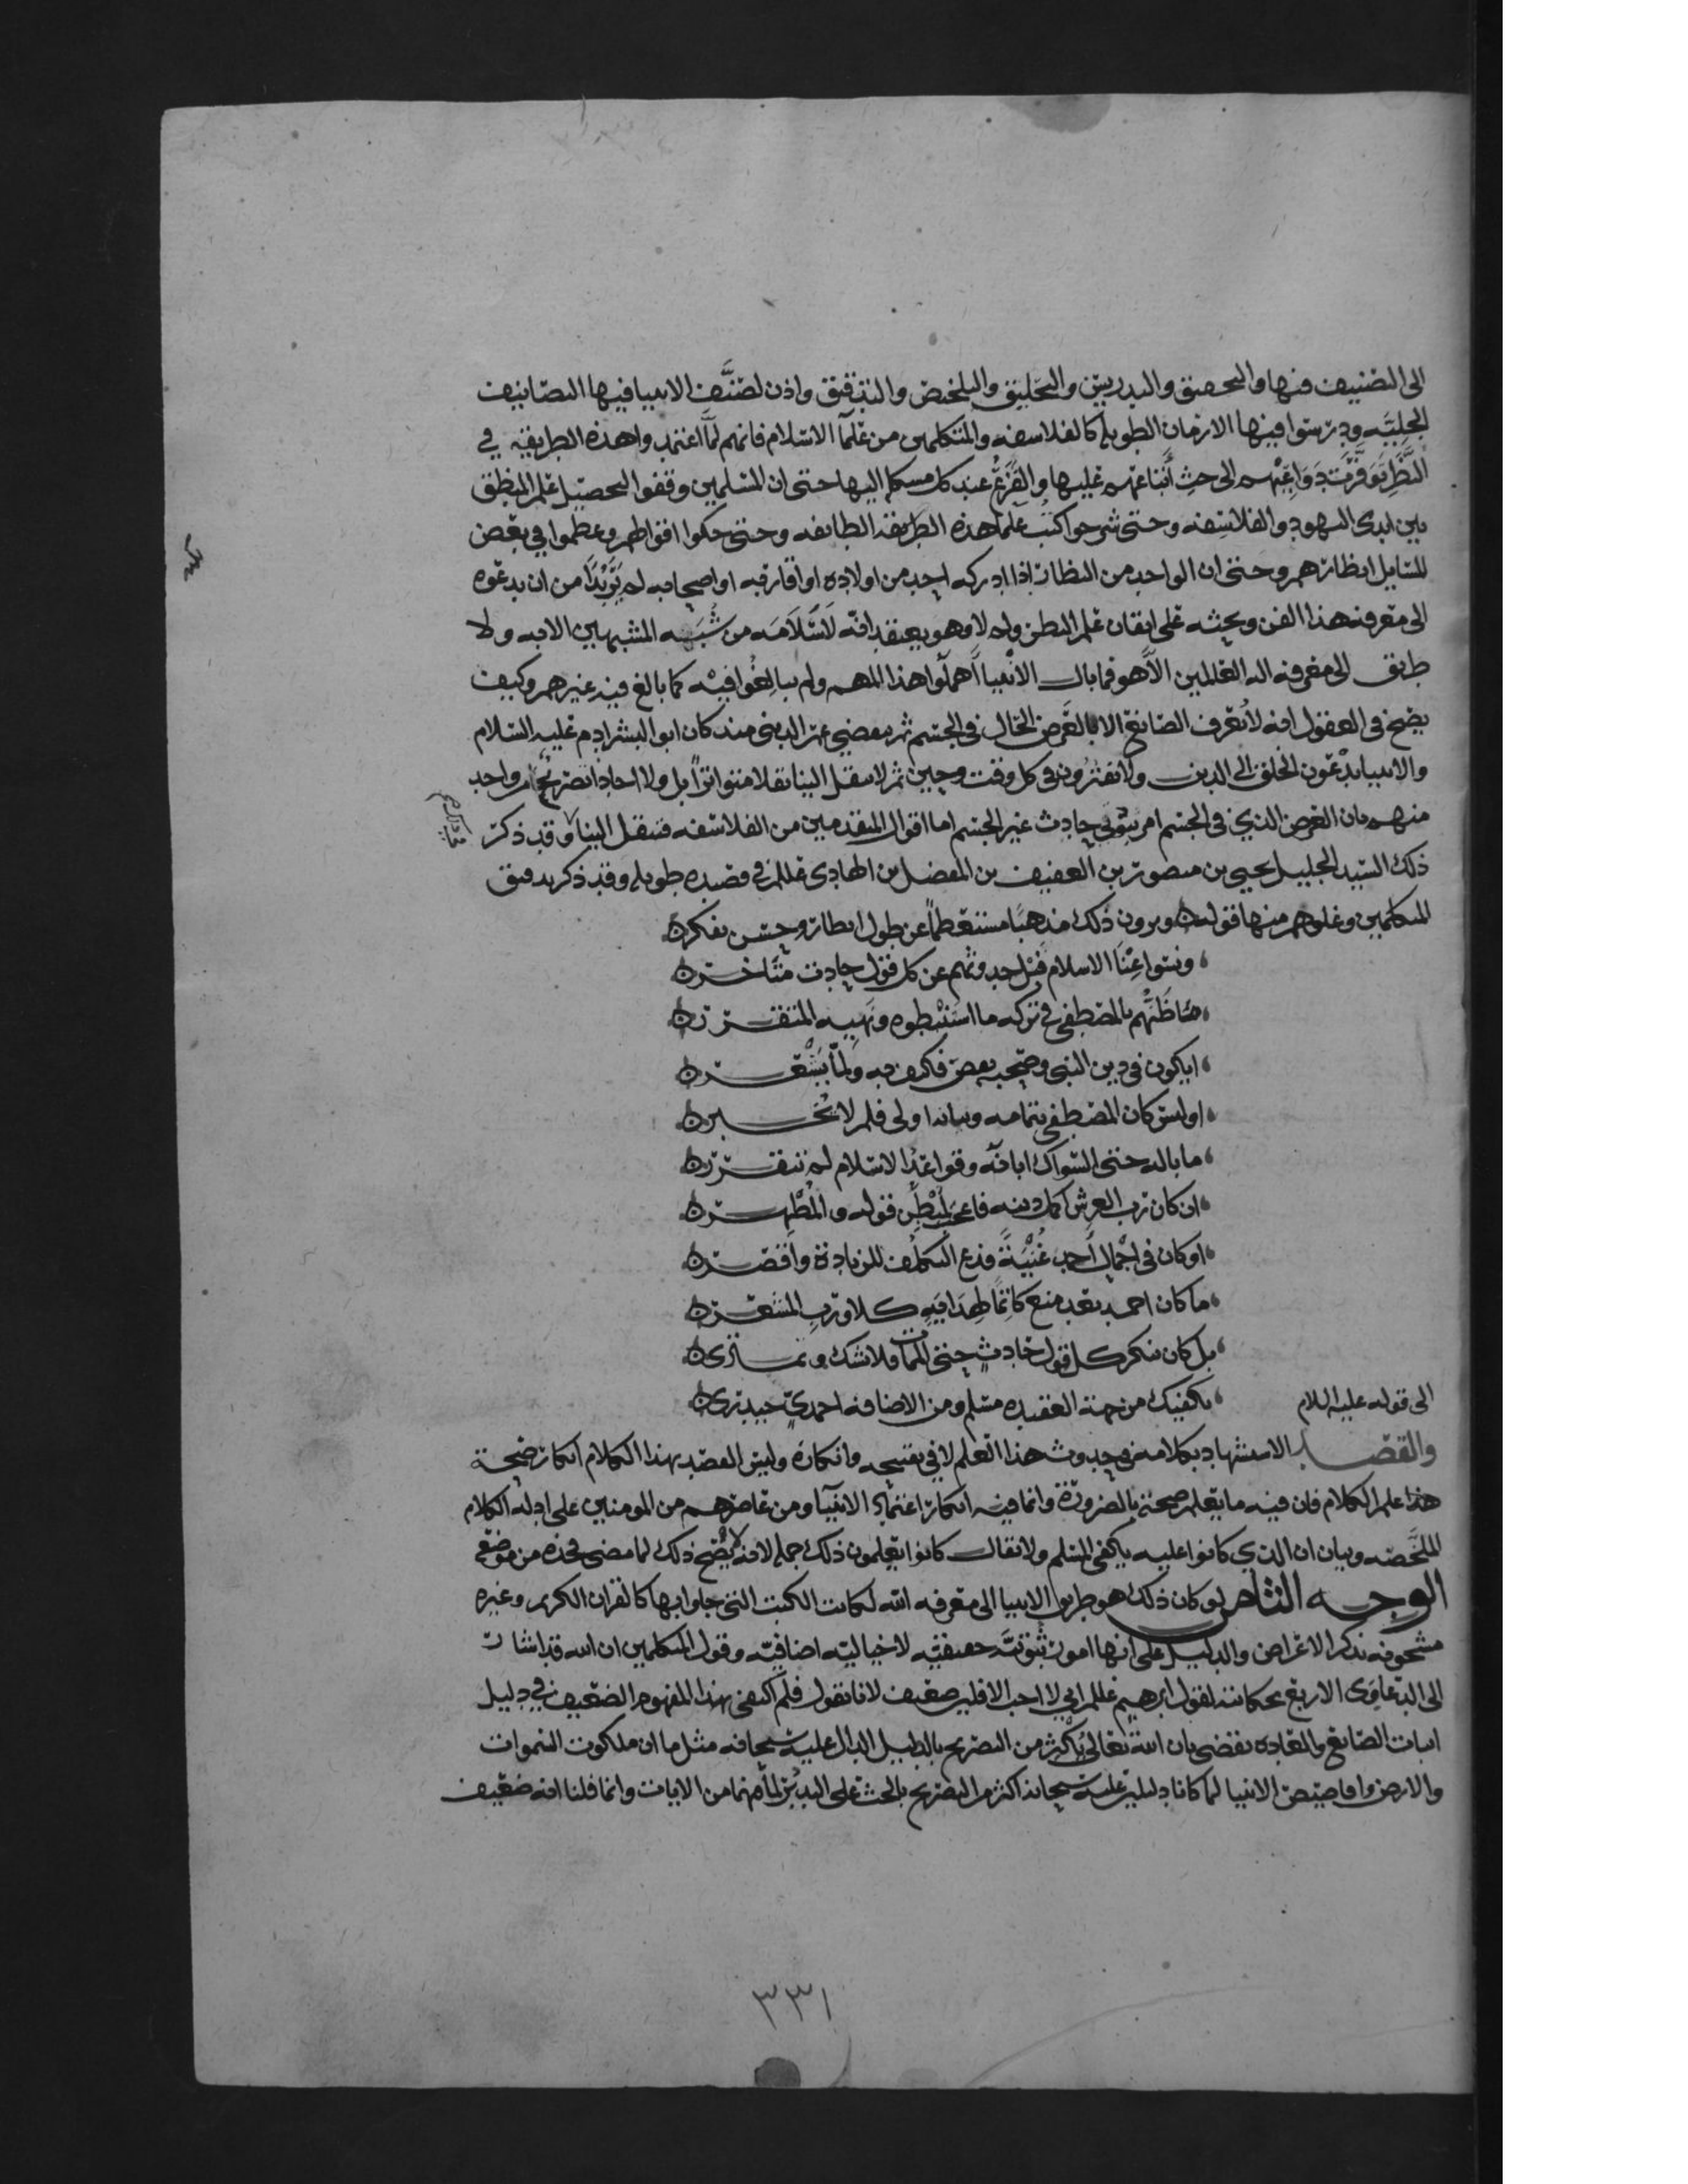 الى التصنيف فيها والتحقيق والتدريس والتحليق والتلخيص والتدقيق واذن لصنَّف الانبيا فيها التصانيف
الجليّه ودرسوا فيها الازمان الطويله كالفلاسفه والمتكلمين من علمآ الاسلام فانهم لمّا اعتمدوا هذه الطريقه في
النَّظَرِ توفَّرَت دَوَاعِيْهم الى حث أَتباعهم عليها والفَزَعْ عند كل مشكل اليها حتى ان المسلمين وقفوا لتحصيل علم المنطق
بين ايدى اليهود والفلاسفه وحتى شرحوا كتب علمآ هذه الطريقه الطايفه وحتى حكوا اقوالهم وعظموا في بعض
المسايل انظارهم وحتى ان الواحد من النظار اذا ادركه احد من اولاده او اقاربه او اصحابه لم يَرَ بُدًّا من ان يدعوه
الى معرفة هذا الفن ويحثه على اتقان علم النظر وله لا وهو يعتقد انّه لَاسَلَامَه من شُبَهِ المشبهين الا به ولا
طريق الى معرفة اله العالمين الَّا هو فما بال الانبيا أَهملوا هذا المهم ولم يبالِغُوا فيْه كما بالغ فيه غيرهم وكيف
يصح في العقول انه لا يُعرف الصانع الا بالعَرَض الحَال في الجسم ثم يمضي عمر الدنيى منذ كان ابو البشر ادم عليه السلام
والانبيا يدْعون الخلق الى الدين ولا يفترون في كل وقت وحين ثم لا ينقل الينا نقلا متواتراً بل ولا احادياً تصريح واحد
منهم بان العرض الذي في الجسم امر ثبوتي حادث غير الجسم اما اقوال المتقدمين من الفلاسفه فتنقل الينا وقد ذكر
ذلك السيد الجليل يحيى بن منصور بن العفيف بن المفضل من الهادى عللم في قصيده طويله وقد ذكر تدقيق
المتكلمين وغلوهم منها قوله ويرون ذلك مذهبًا مستعظماً عن طول انظار وحسن تفكره
ونسوا غِنَا الاسلام قبل حدوثهم عن كل قول حادث متاخره
ما ظَنُّهم بالمصطفى في تركه ما استنبطوه ونَهيه المتقرره
ايكون في دين النبى وصحبه نقص فكيف به ولمّا يَشْعره
اوليس كان المصطفى بتمامه وبيانه اولى فلم لا يُخبره
ما باله حتى السواك ابانه وقواعد الاسلام لم تتقرره
ان كان رب العرش اكمل دينه فاعجب لمُبْطِن قوله والمُظْهره
او كان في اجمال أحمد غُنْيَةً فدع التكلف للزيادة واقصره
ما كان احمد بعد منع كاتمًا لهدايه كلا ورب المشعره
بل كان ينكر كل قول حادث حتى الممات فلا تشك وتمترى
الى قوله عليه السلام يكفيك من جهة العقيده مسلم ومن الاضافه احمدي حيدرى
والقصد الاستشهاد بكلامه في حدوث هذا العلم لا في تقبيحه وانكاره وليس القصد بهذا الكلام انكار صحة
هذا علم الكلام فان فيه ما يعلم صحته بالضرورة وانما فيه انكار اعتماد الانبيآ ومن عاصرهم من المومنين على ادلة الكلام
الملخَّصه وبيان ان الذي كانوا عليه يكفى المسلم ولا يقال كانوا يعلمون ذلك جمله لانه لا يصح ذلك لما مضى في هذه من موضع
الوجه الثامن لو كان ذلك هو طريق الانبيا الى معرفه الله لكانت الكتب التى جاوا بها كالقران الكريم وغيره
مشحونه بذكر الاعراض والدليل على انها امور ثبوتيَّه حقيقيه لا خياليّه اضافيّه وقول المتكلمين ان الله قد اشار
الى الدعاوى الاربع بحكايته لقول ابرهيم عللم اني لا احب الافلين ضعيف لانا نقول فلم اكتفى بهذا المفهوم الضعيف في دليل
اثبات الصانع والعاده تقضى بان الله تعالى يُكْثر من التصريح بالدليل الدال عليه سبحانه مثل ما ان ملكوت السموات
والارض وقاصيص الانبيا لما كانا دليلين عليه سبحانه اكثر من التصريح بالحث على التدبُّر لما فيهما من الايات وانما قلنا انه ضعيف
٣٣١